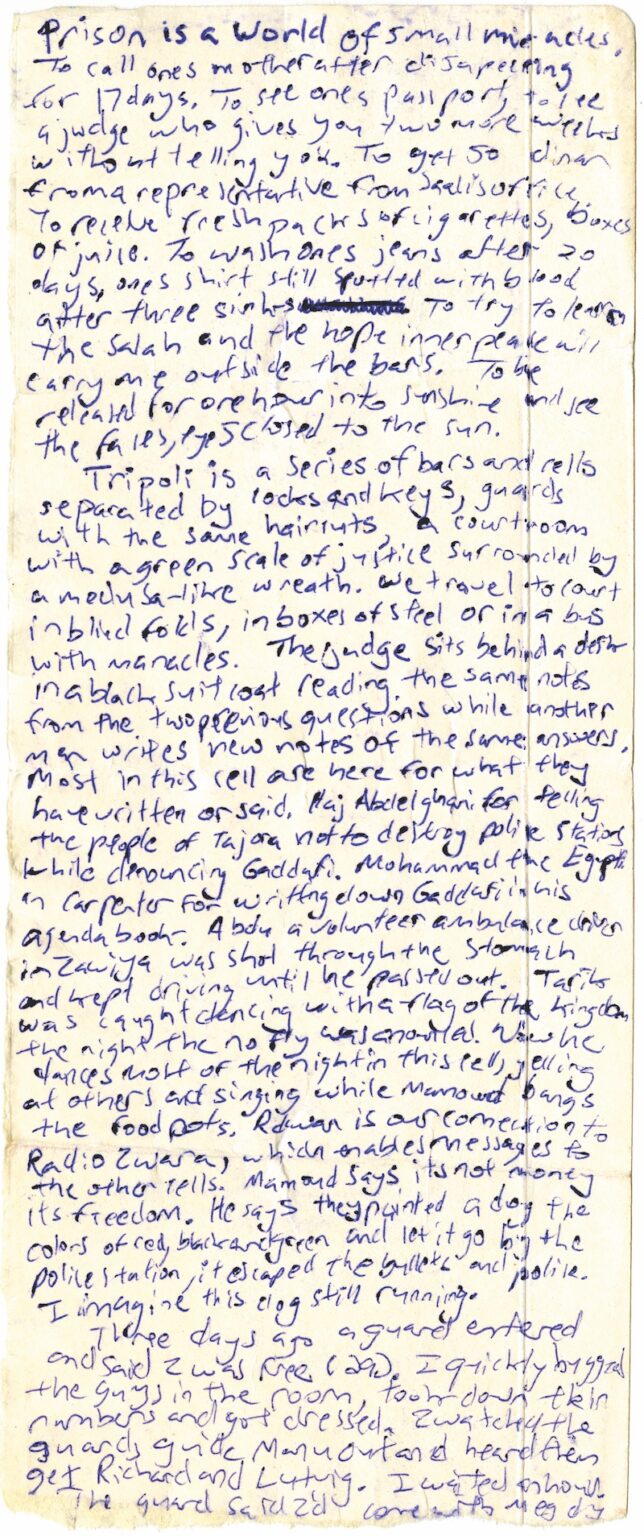 Prison is a world of small miracles.
To call ones mother after disapeering
for 17 days. To see ones passport, to see
a judge who gives you two more weeks
without telling you. To get 50 dinar
from a representative from Saadis office
To receive fresh packs of cigarettes, boxes
of juice. To wash ones jeans after 20
days, ones shirt still spotted with blood
after three sinks To try to learn
the Salah and the hope inner peace will
carry me outside the bars. To be
released for one hour into sunshine and see
the faces, eyes closed to the sun.
Tripoli is a series of bars and cells
separated by locks and keys, guards
with the same haircuts, a courtroom
with a green scale of justice surrounded by
a medusa-like wreath. We travel to court
in blind folds, in boxes of steel or in a bus
with manacles. The judge sits behind a desk
in a black suitcoat reading the same notes
from the two previous questions while another
man writes new notes of the same answers.
Most in this cell are here for what they
have written or said. Haj Abdelghani for telling
the people of Tajora not to destroy police stations
while denouncing Gaddafi. Mohammad the Egypti
an Carpenter for writting down Gaddafi in his
agenda book. Abdu a volunteer ambulance driver
in Zawiya was shot through the stomach
and kept driving until he passed out. Tarik
was caught dancing with a flag of the kingdom
the night the no fly was anounced. Now he
dances most of the night in this cell, yelling
at others and singing while Mamoud bangs
the food pots. Rawan is our connection to
Radio Zwara, which enables messages to
the other cells. Mamoud says its not money
its freedom. He says they painted a dog the
colors of red, black and green and let it go by the
police station, it escaped the bullets and police.
I imagine this dog still running.
Three days ago a guard entered
and said I was free I quickly hugged
the guys in the room, took down their
numbers and got dressed. I watched the
guards guide Manu out and heard them
get Richard and Lutvig. I waited an hour.
The guard said I'd come with Meg dy